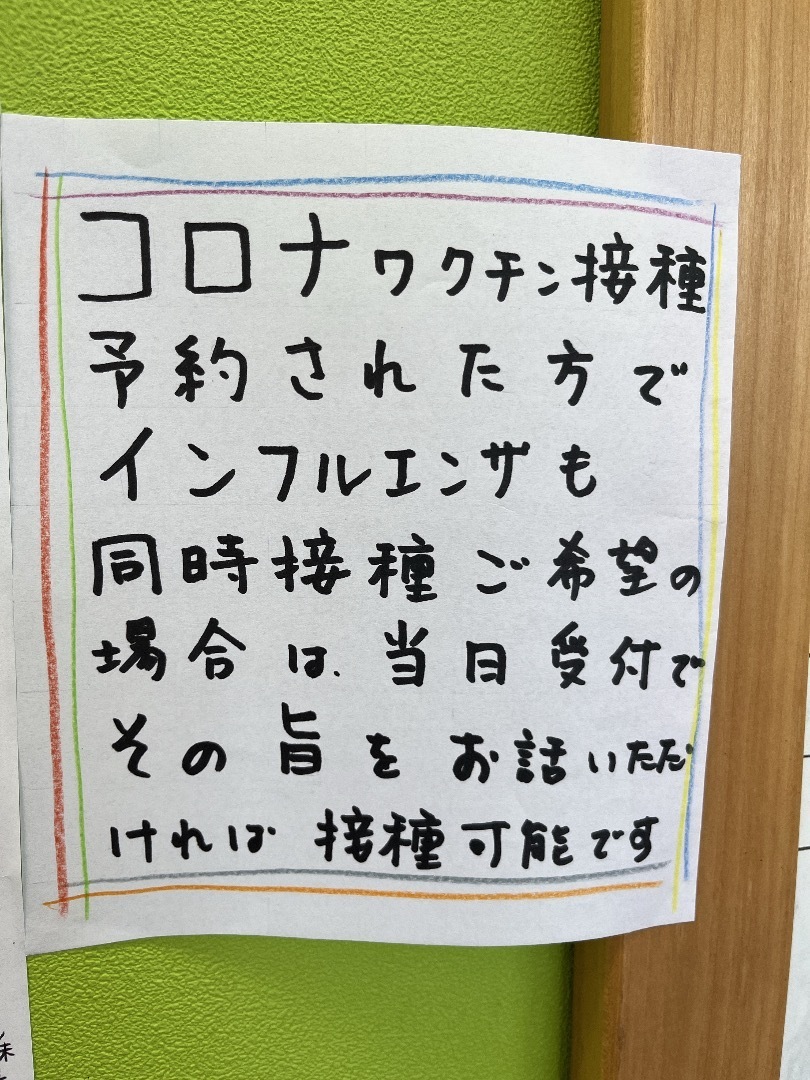 コロナワクチン接種
予約された方で
インフルエンザも
同時接種ご希望の
場合は、当日受付で
その旨をお話いただ
ければ接種可能です